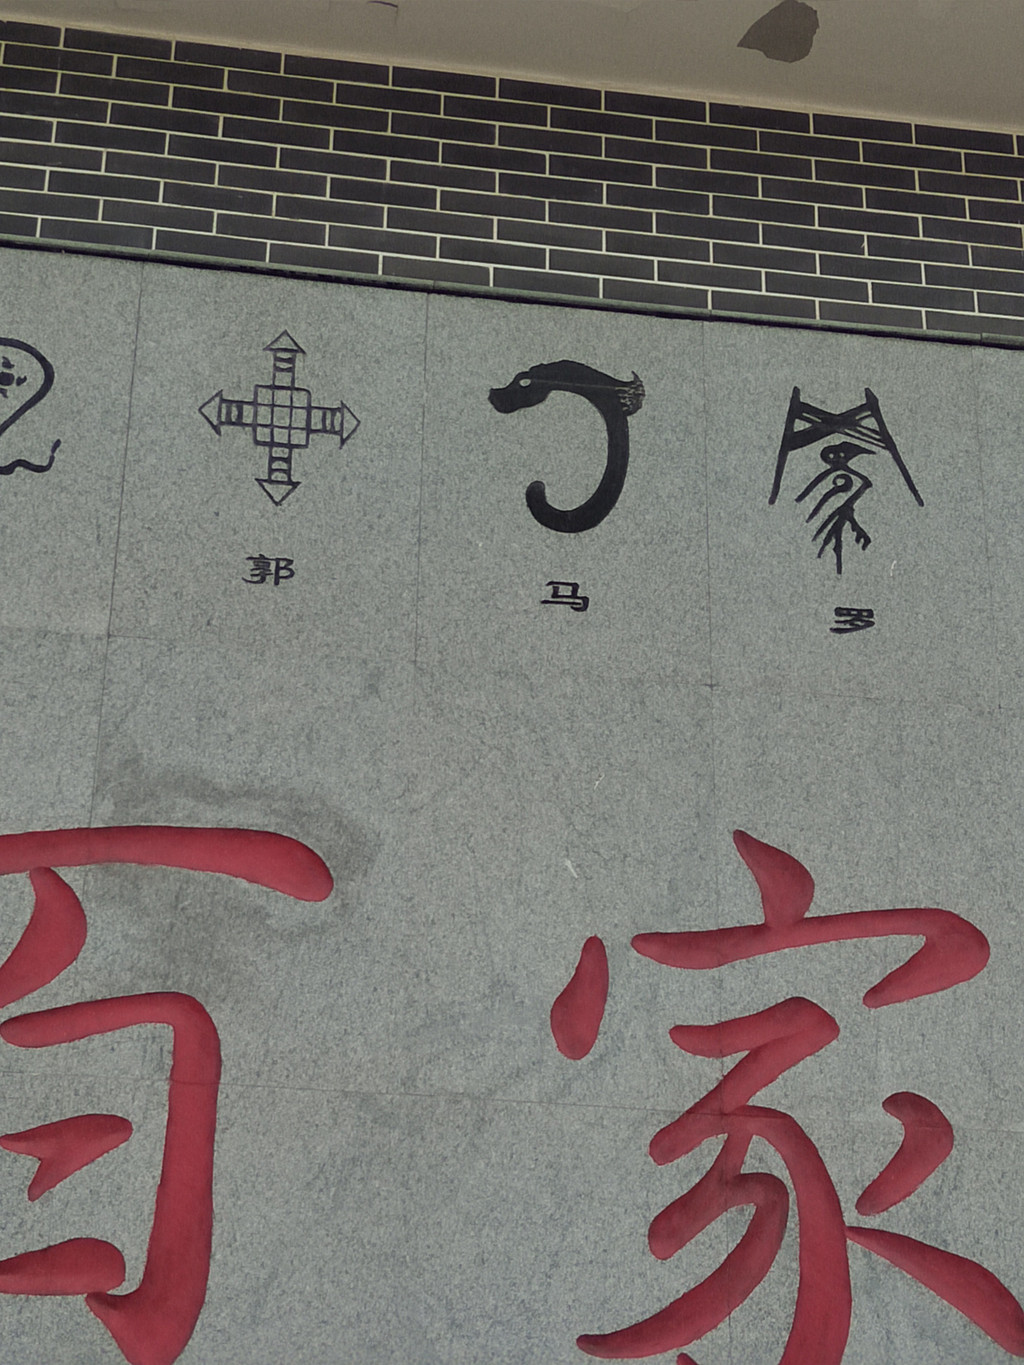 郭 马 罗
百家